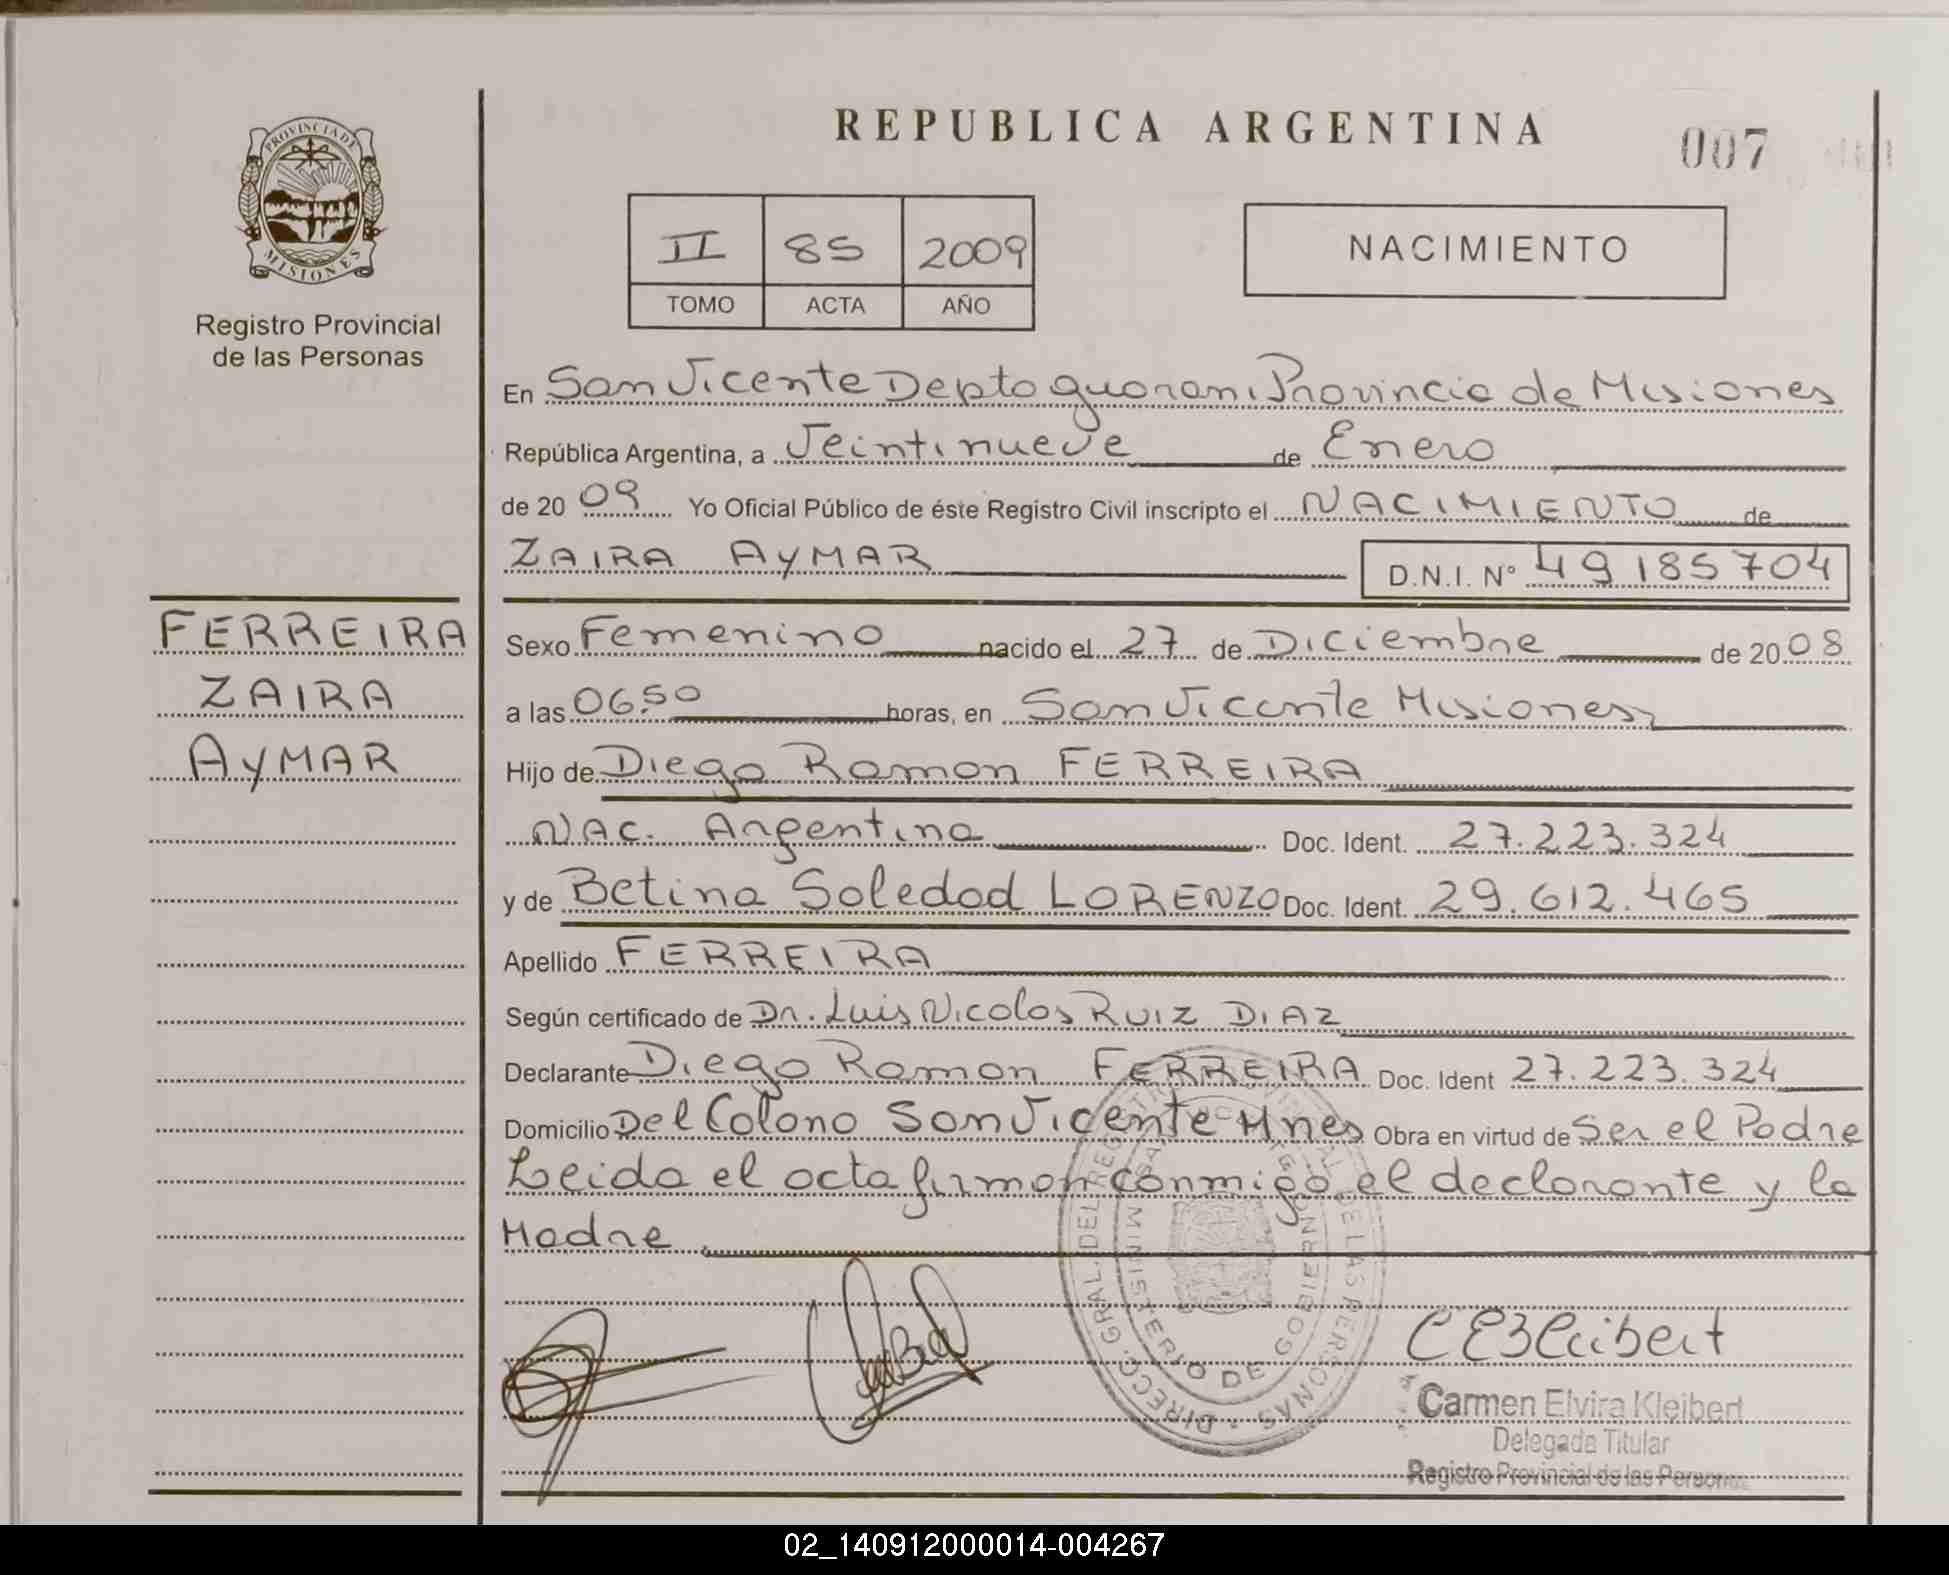 REPUBLICA ARGENTINA
007
PROVINCIA DE
MISIONES
Registro Provincial
de las Personas
II 85 2009
TOMO ACTA AÑO
NACIMIENTO
En San Vicente Depto guarani Provincia de Misiones
República Argentina, a Veintinueve de Enero
de 2009 Yo Oficial Público de éste Registro Civil inscripto el NACIMIENTO de
ZAIRA AYMAR D.N.I. N° 49185704
FERREIRA
ZAIRA
AYMAR
Sexo Femenino nacido el 27 de Diciembre de 2008
a las 06,50 horas, en San Vicente Misiones
Hijo de Diego Ramon FERREIRA
NAC. Argentina Doc. Ident. 27.223.324
y de Betina Soledad LORENZO Doc. Ident. 29.612.465
Apellido FERREIRA
Según certificado de Dr. Luis Nicolas RUIZ DIAZ
Declarante Diego Ramon FERREIRA Doc. Ident 27.223.324
Domicilio Del Colono San Vicente Mnes Obra en virtud de Ser el Padre
Leida el acta firman conmigo el declarante y la
Madre
DIRECC. GRAL. DEL REGISTRO PROVINCIAL DE LAS PERSONAS
MINISTERIO DE GOBIERNO
CEKleibert
Carmen Elvira Kleibert
Delegada Titular
Registro Provincial de las Personas
02_140912000014-004267